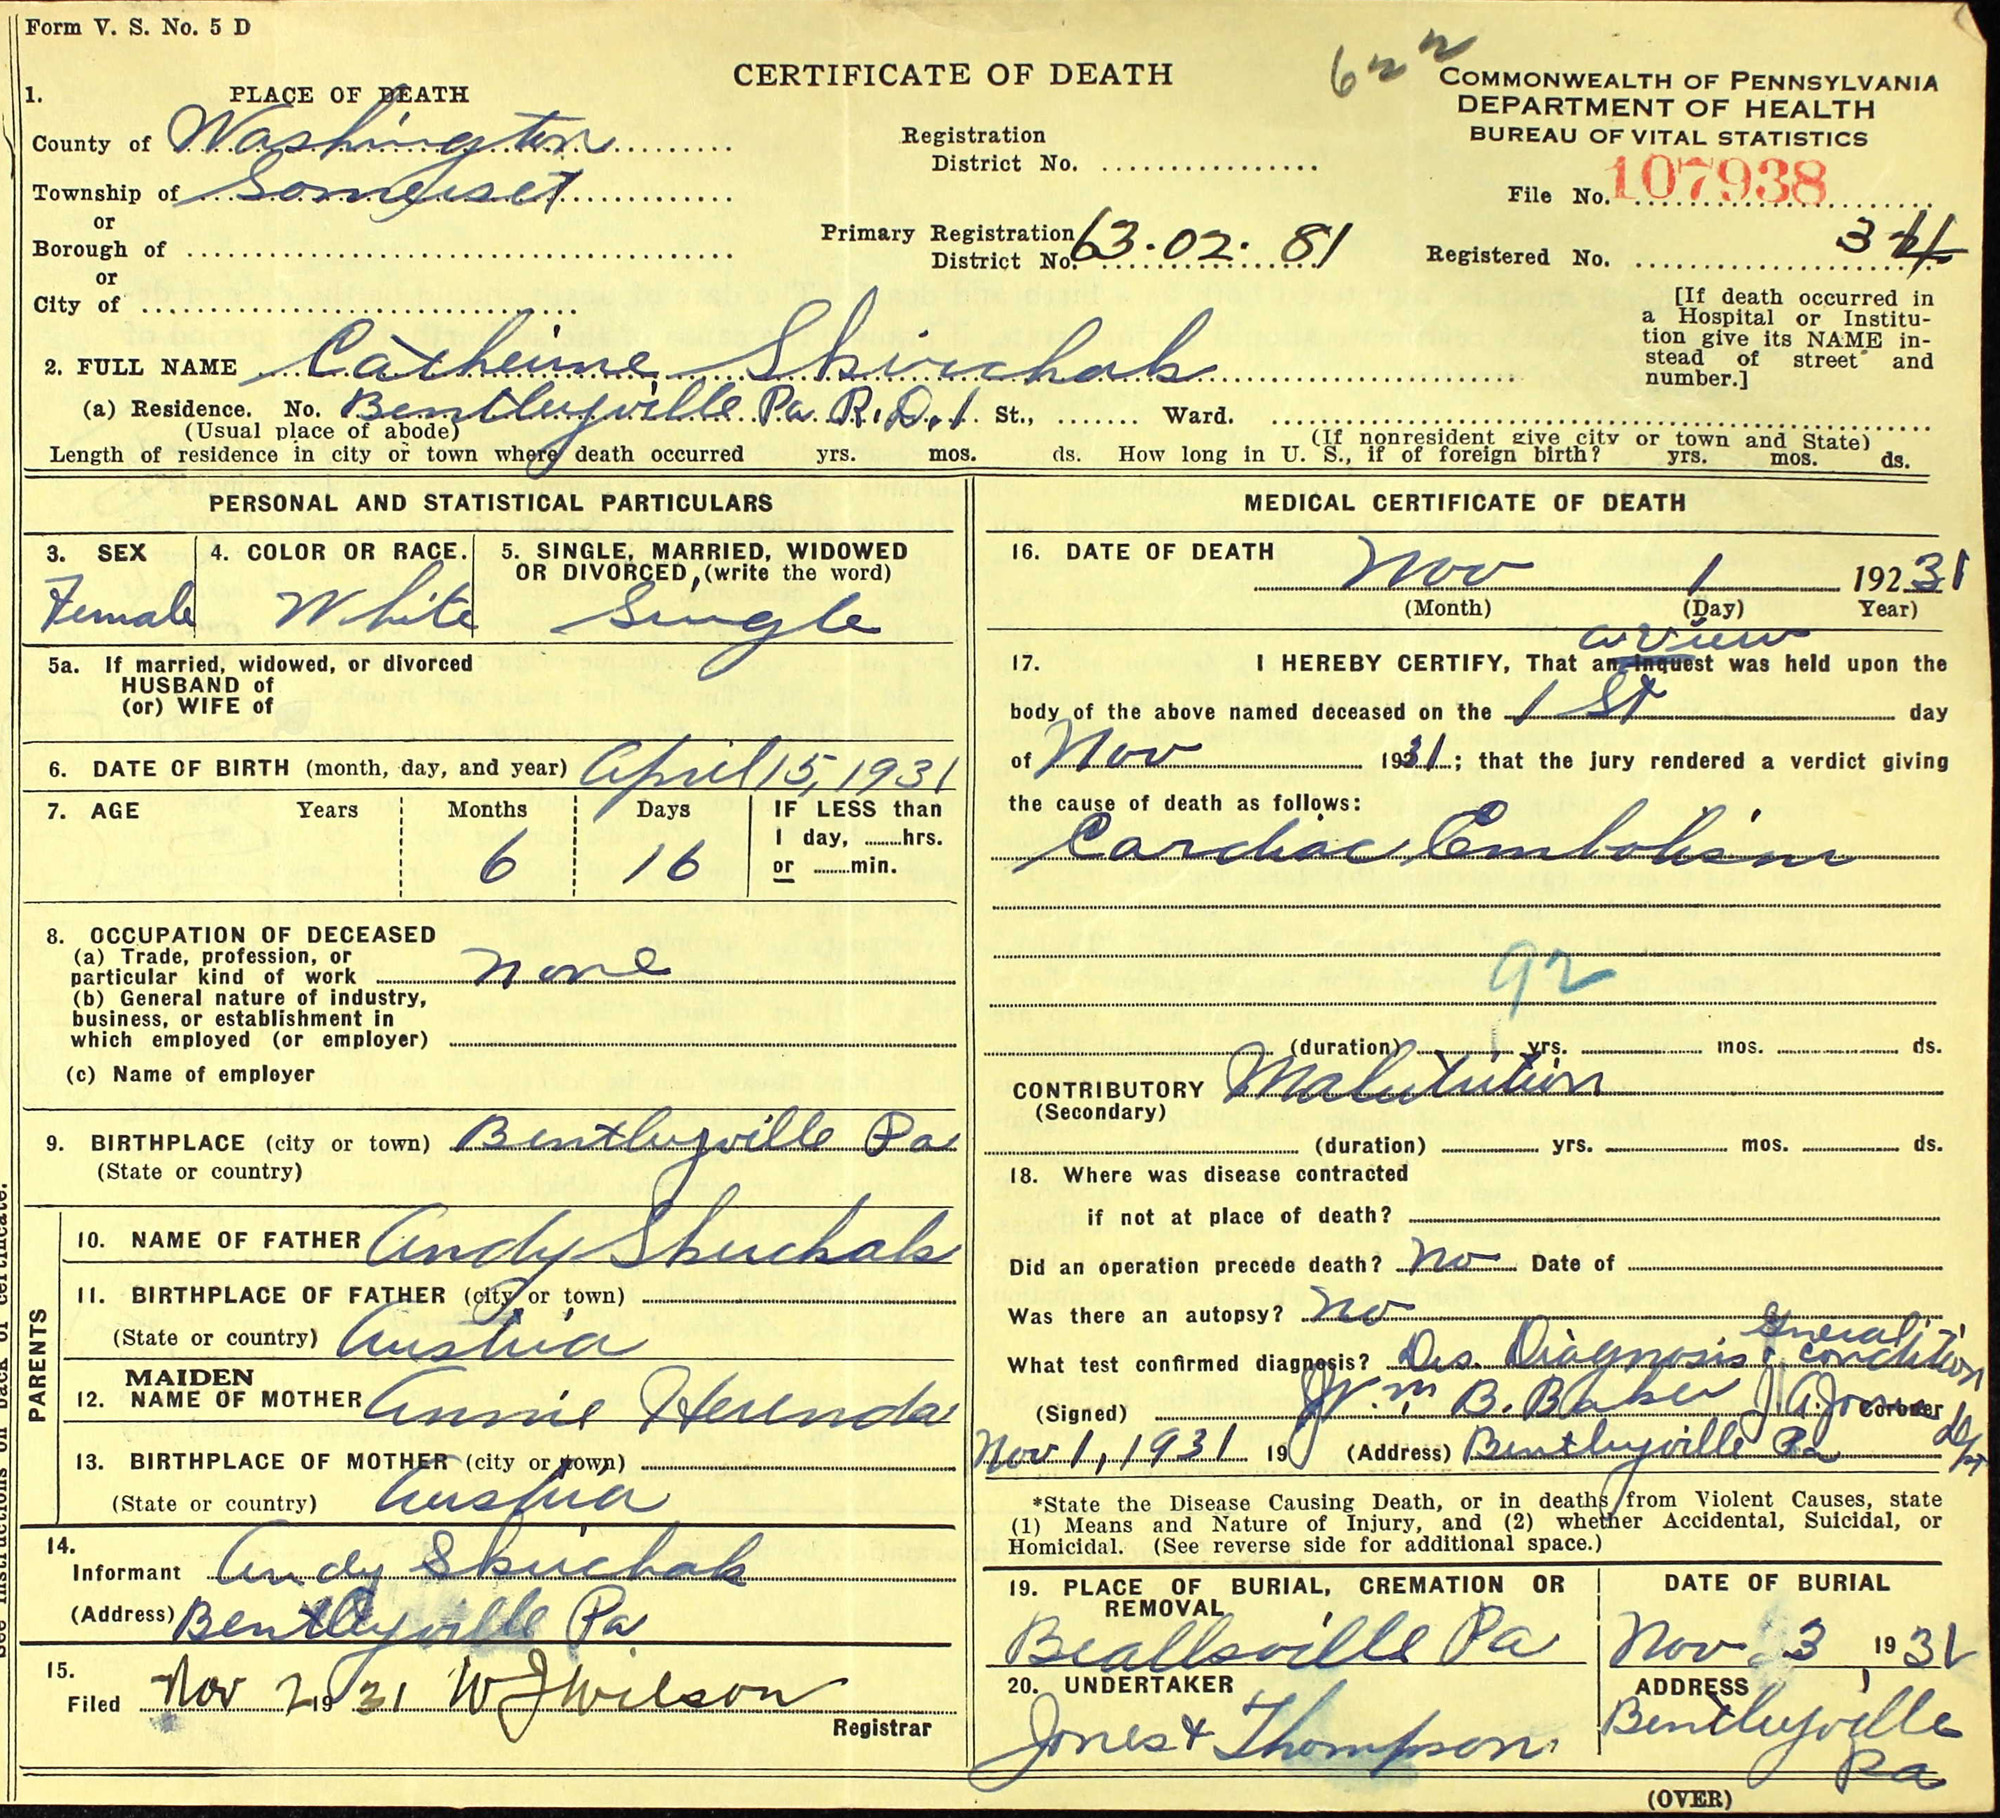 Form V. S. No. 5 D
CERTIFICATE OF DEATH
COMMONWEALTH OF PENNSYLVANIA
DEPARTMENT OF HEALTH
BUREAU OF VITAL STATISTICS
1. PLACE OF DEATH
County of Washington
Township of Somerset
or
Borough of
or
City of
Registration
District No.
Primary Registration
District No. 63-02-81
File No. 107938
Registered No. 34
[If death occurred in
a Hospital or Institu-
tion give its NAME in-
stead of street and
number.]
2. FULL NAME Catherine Skirchak
(a) Residence. No. Bentleyville Pa R.D.1 St., Ward.
(Usual place of abode) (If nonresident give city or town and State)
Length of residence in city or town where death occurred yrs. mos. ds. How long in U. S., if of foreign birth? yrs. mos. ds.
PERSONAL AND STATISTICAL PARTICULARS
3. SEX 4. COLOR OR RACE. 5. SINGLE, MARRIED, WIDOWED
OR DIVORCED, (write the word)
Female White Single
5a. If married, widowed, or divorced
HUSBAND of
(or) WIFE of
6. DATE OF BIRTH (month, day, and year) April 15, 1931
7. AGE Years Months Days IF LESS than
1 day, hrs.
or min.
6 16
8. OCCUPATION OF DECEASED
(a) Trade, profession, or
particular kind of work none
(b) General nature of industry,
business, or establishment in
which employed (or employer)
(c) Name of employer
9. BIRTHPLACE (city or town) Bentleyville Pa
(State or country)
PARENTS
10. NAME OF FATHER Andy Skirchak
11. BIRTHPLACE OF FATHER (city or town)
(State or country) Austria
12. MAIDEN
NAME OF MOTHER Annie Herenda
13. BIRTHPLACE OF MOTHER (city or town)
(State or country) Austria
14.
Informant Andy Skirchak
(Address) Bentleyville Pa
15.
Filed Nov 2 19 31 W J Wilson
Registrar
MEDICAL CERTIFICATE OF DEATH
16. DATE OF DEATH Nov 1 192 31
(Month) (Day) Year)
a view
17. I HEREBY CERTIFY, That an inquest was held upon the
body of the above named deceased on the 1 St day
of Nov 1931; that the jury rendered a verdict giving
the cause of death as follows:
Cardiac Embolism
92
(duration) yrs. mos. ds.
CONTRIBUTORY Malutrition
(Secondary)
(duration) yrs. mos. ds.
18. Where was disease contracted
if not at place of death?
Did an operation precede death? No Date of
Was there an autopsy? No
What test confirmed diagnosis? Drs. Diagnosis & general condition
(Signed) Wm. B. Baker J.A. Jones Coroner
Nov 1, 1931 19 (Address) Bentleyville Pa
*State the Disease Causing Death, or in deaths from Violent Causes, state
(1) Means and Nature of Injury, and (2) whether Accidental, Suicidal, or
Homicidal. (See reverse side for additional space.)
19. PLACE OF BURIAL, CREMATION OR
REMOVAL
Beallsville Pa
DATE OF BURIAL
Nov 3, 1931
20. UNDERTAKER
Jones & Thompson
ADDRESS
Bentleyville
Pa
(OVER)